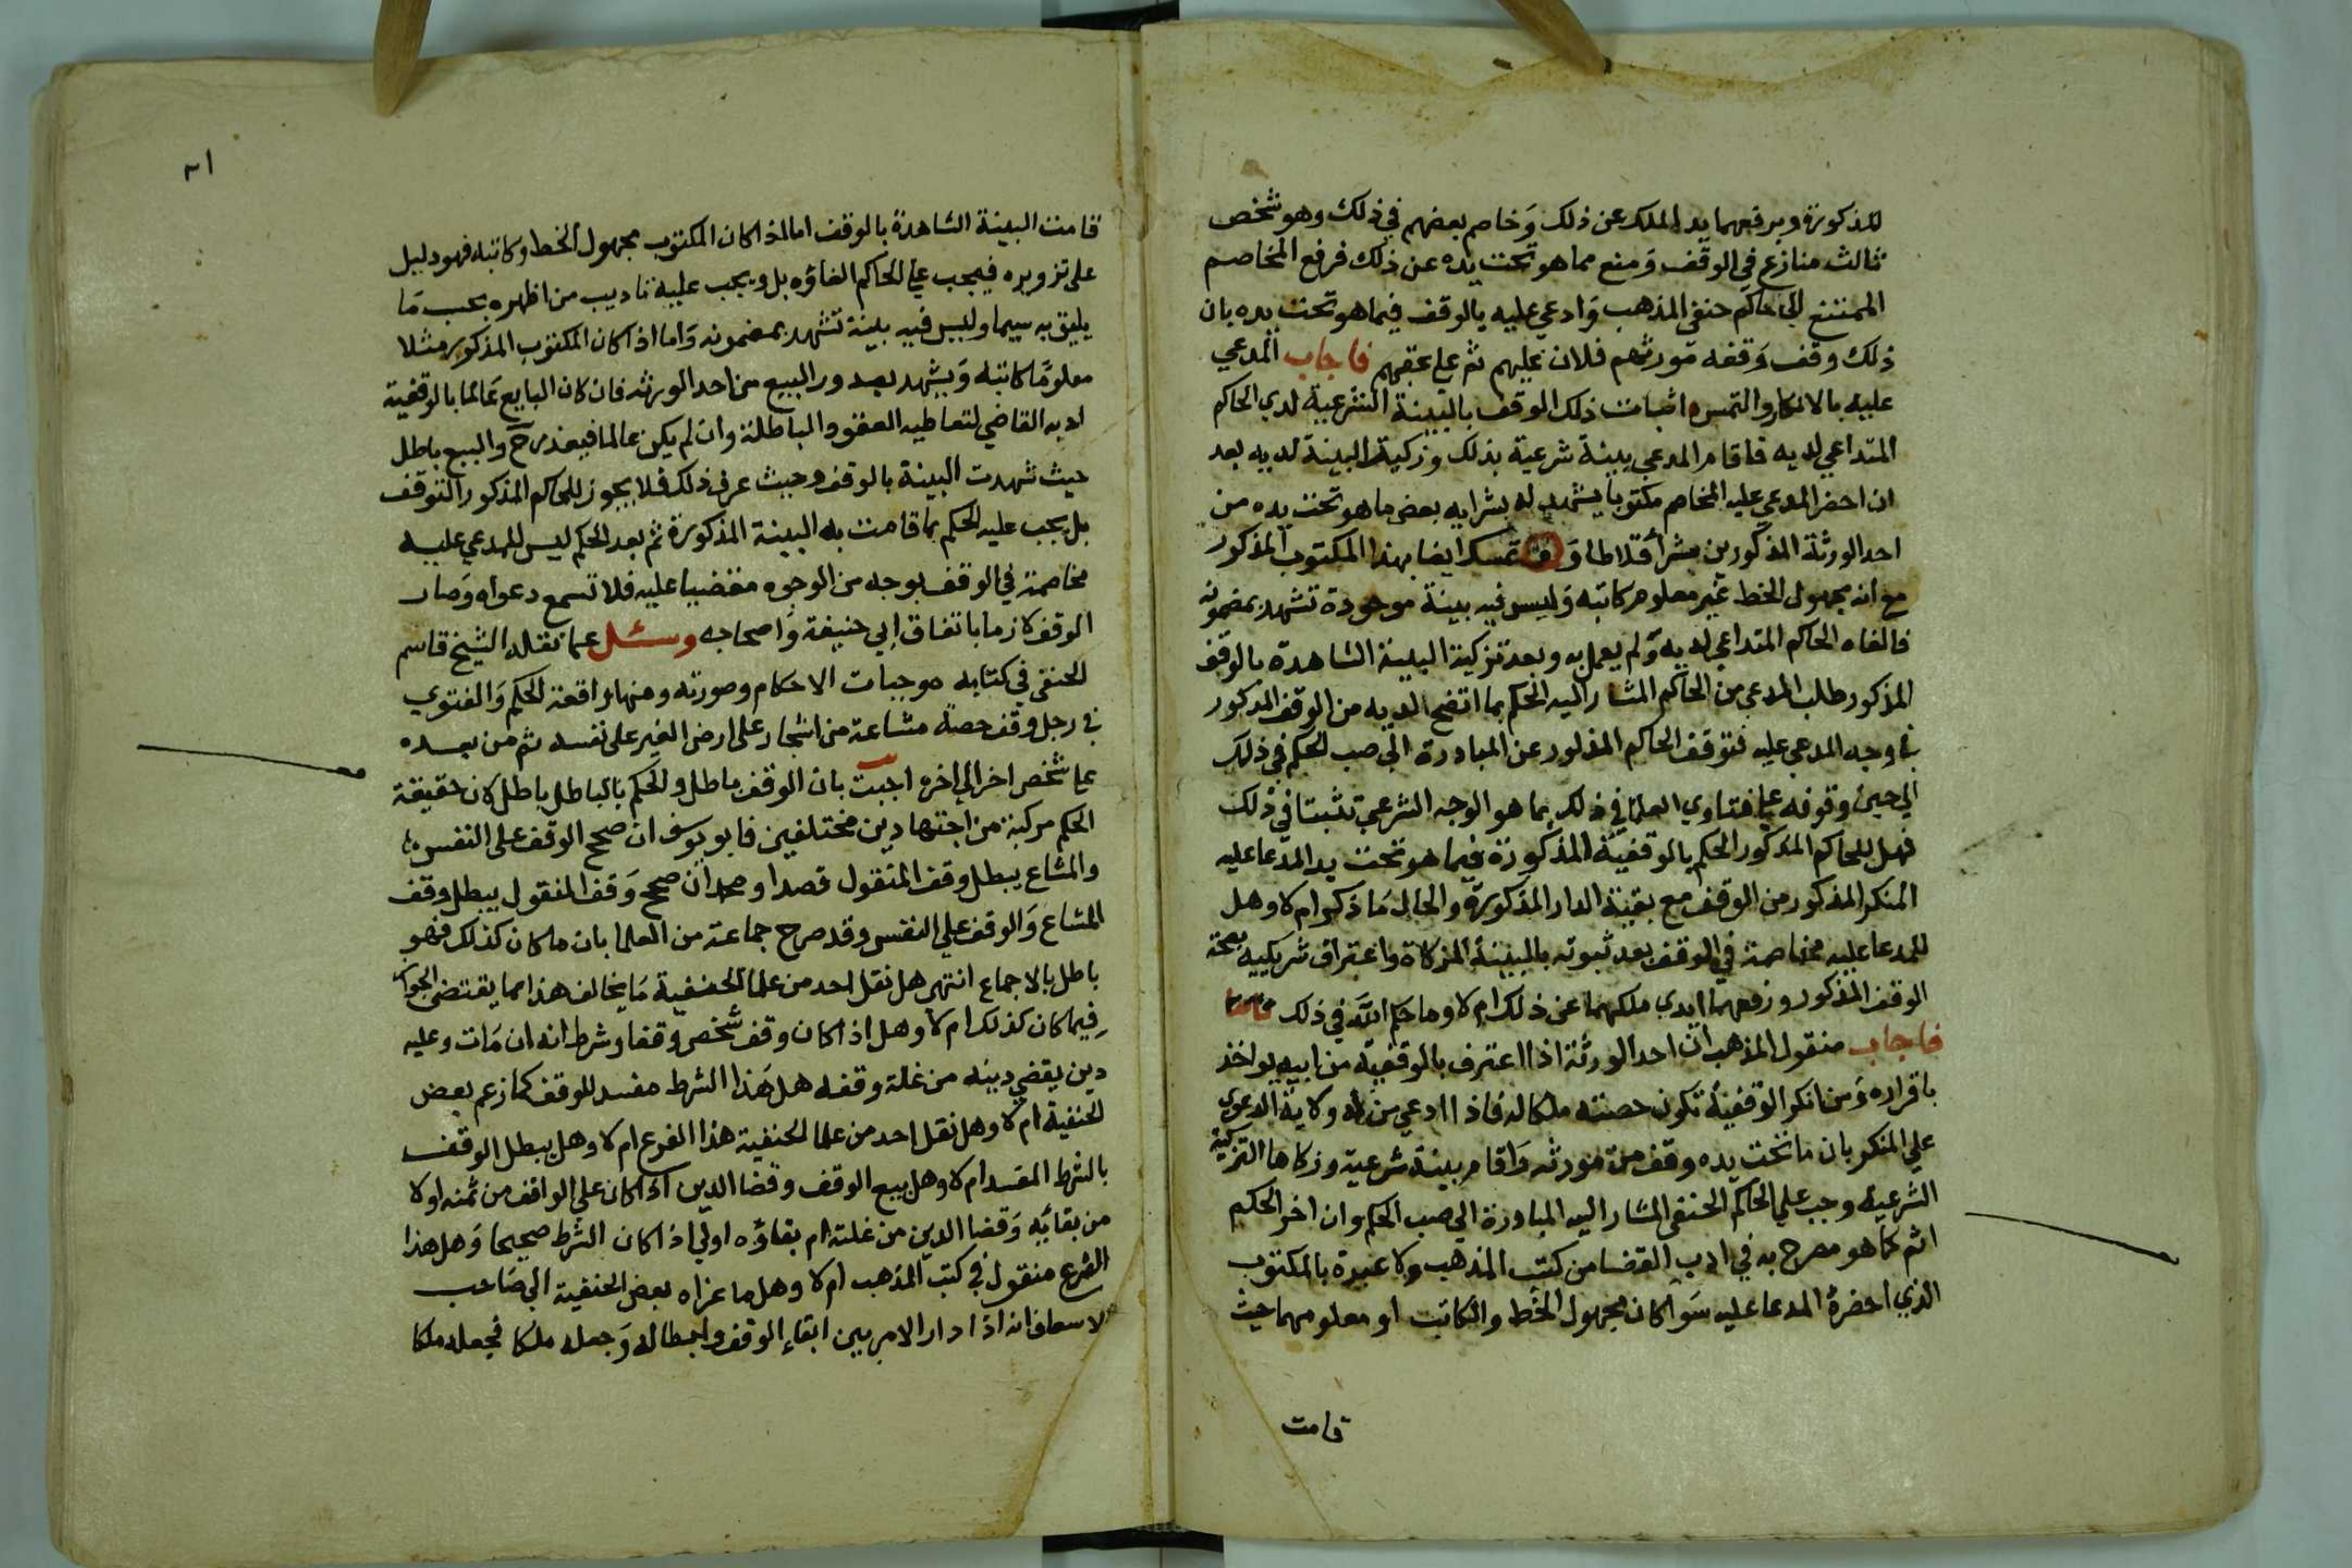 للذكورة ويرفعهما يد الملك عن ذلك وخاصم بعضهم في ذلك وهو شخص
ثالث منازع في الوقف ومنع مما هو تحت يده عن ذلك فرفع المخاصم
الممتنع الى حاكم حنفي المذهب وادعي عليه بالوقف فيما هو تحت يده بان
ذلك وقف وقفه مورثهم فلان عليهم ثم على عقبهم فاجاب المدعي
عليه بالانكار والتمس اثبات ذلك الوقف بالبينة الشرعية لدي الحاكم
المتداعي لديه فاقام المدعي بينة شرعية بذلك وزكية البينة لديه بعد
ان احضر المدعي عليه المخاصم مكتوبا يشهد له بشرايه بعض ما هو تحت يده من
احد الورثة المذكورين تمسك ايضا بهذا المكتوب المذكور
مع انه مجهول الخط غير معلوم كاتبه وليس فيه بينة موجودة تشهد بمضمونه
فالغاه الحاكم المتداعي لديه ولم يعمل به وبعد تزكية البينة الشاهدة بالوقف
المذكور طلب المدعي من الحاكم المشار اليه الحكم بما اتضح لديه من الوقف المذكور
في وجه المدعي عليه فتوقف الحاكم المذكور عن المبادرة الي صب الحكم في ذلك
الي حين وقوفه علي فتاوي العلما في ذلك بما هو الوجه الشرعي تثبتا في ذلك
فهل للحاكم المذكور الحكم بالوقفية المذكورة فيما هو تحت يد المدعا عليه
المنكر المذكور من الوقف مع بقية الدار المذكورة والحال ما ذكر ام لا وهل
للمدعا عليه مخاصمة في الوقف بعد ثبوته بالبينة المزكاة واعتراف شريكيه بصحة
الوقف المذكور ورفعهما ايدي ملكهما عن ذلك ام لا وما حكم الله في ذلك
فاجاب منقول المذهب ان احد الورثة اذا اعترف بالوقفية من ابيه يواخذ
باقراره ومن انكر الوقفية تكون حصته ملكا له فاذا ادعي من له ولاية الدعوي
علي المنكر بان ما تحت يده وقف من مورثه واقام بينة شرعية وزكاها التزكية
الشرعية وجب علي الحاكم الحنفي المشار اليه المبادرة الي صب الحكم وان اخر الحكم
اثم كما هو مصرح به في ادب القضا من كتب المذهب ولا عبرة بالمكتوب
الذي احضره المدعا عليه سوا كان مجهول الخط والكاتب او معلومهما حيث
قامت
٢١
قامت البينة الشاهدة بالوقف اما اذا كان المكتوب مجهول الخط وكاتبه فهو دليل
على تزويره فيجب علي الحاكم الغاؤه بل ويجب عليه تاديب من اظهره بحسب ما
يليق به سيما وليس فيه بينة تشهد بمضمونه واما اذا كان المكتوب المذكور مثلا
معلوما كاتبه ويشهد بصدور البيع من احد الورثه فان كان البايع عالما بالوقفية
ادبه القاضي لتعاطيه العقود الباطلة وان لم يكن عالما فيعذر ح والبيع باطل
حيث شهدت البينة بالوقف وحيث عرف ذلك فلا يجوز للحاكم المذكور التوقف
بل يجب عليه الحكم بما قامت به البينة المذكورة ثم بعد الحكم ليس للمدعي عليه
مخاصمة في الوقف بوجه من الوجوه مقضيا عليه فلا تسمع دعواه وصار
الوقف لازما باتفاق ابي حنيفة واصحابه وسئل عما نقله الشيخ قاسم
الحنفي في كتابه موجبات الاحكام وصورته ومنها واقعة الحكم والفتوي
في رجل وقف حصة مشاعة من اشجار على ارض الغير على نفسه ثم من بعده
علي شخص اخر الي اخره اجبت بان الوقف باطل والحكم بالباطل باطل لان حقيقة
الحكم مركبة من اجتهادين مختلفين فابو يوسف ان صحح الوقف على النفس
والمشاع يبطل وقف المنقول قصدا ومحمد ان صحح وقف المنقول يبطل وقف
المشاع والوقف علي النفس وقد صرح جماعة من العلما بان ما كان كذلك فهو
باطل بالاجماع انتهى هل نقل احد من علما الحنفية ما يخالف هذا مما يقتضي الجواز
فيما كان كذلك ام لا وهل اذا كان وقف شخص وقفا وشرط انه ان مات وعليه
دين يقضي دينه من غلة وقفه هل هذا الشرط مفسد للوقف كما زعم بعض
الحنفية ام لا وهل نقل احد من علما الحنفية هذا الفرع ام لا وهل يبطل الوقف
بالشرط المفسد ام لا وهل بيع الوقف وقضا الدين اذا كان علي الواقف من ثمنه اولا
من بقايه وقضا الدين من غلته ام بقاؤه اولي اذا كان الشرط صحيحا وهل هذا
الفرع منقول في كتب المذهب ام لا وهل ما عزاه بعض الحنفية الي صاحب
الاسعاف انه اذا دار الامر بين ابقاء الوقف وابطاله وجعله ملكا فجعله ملكا